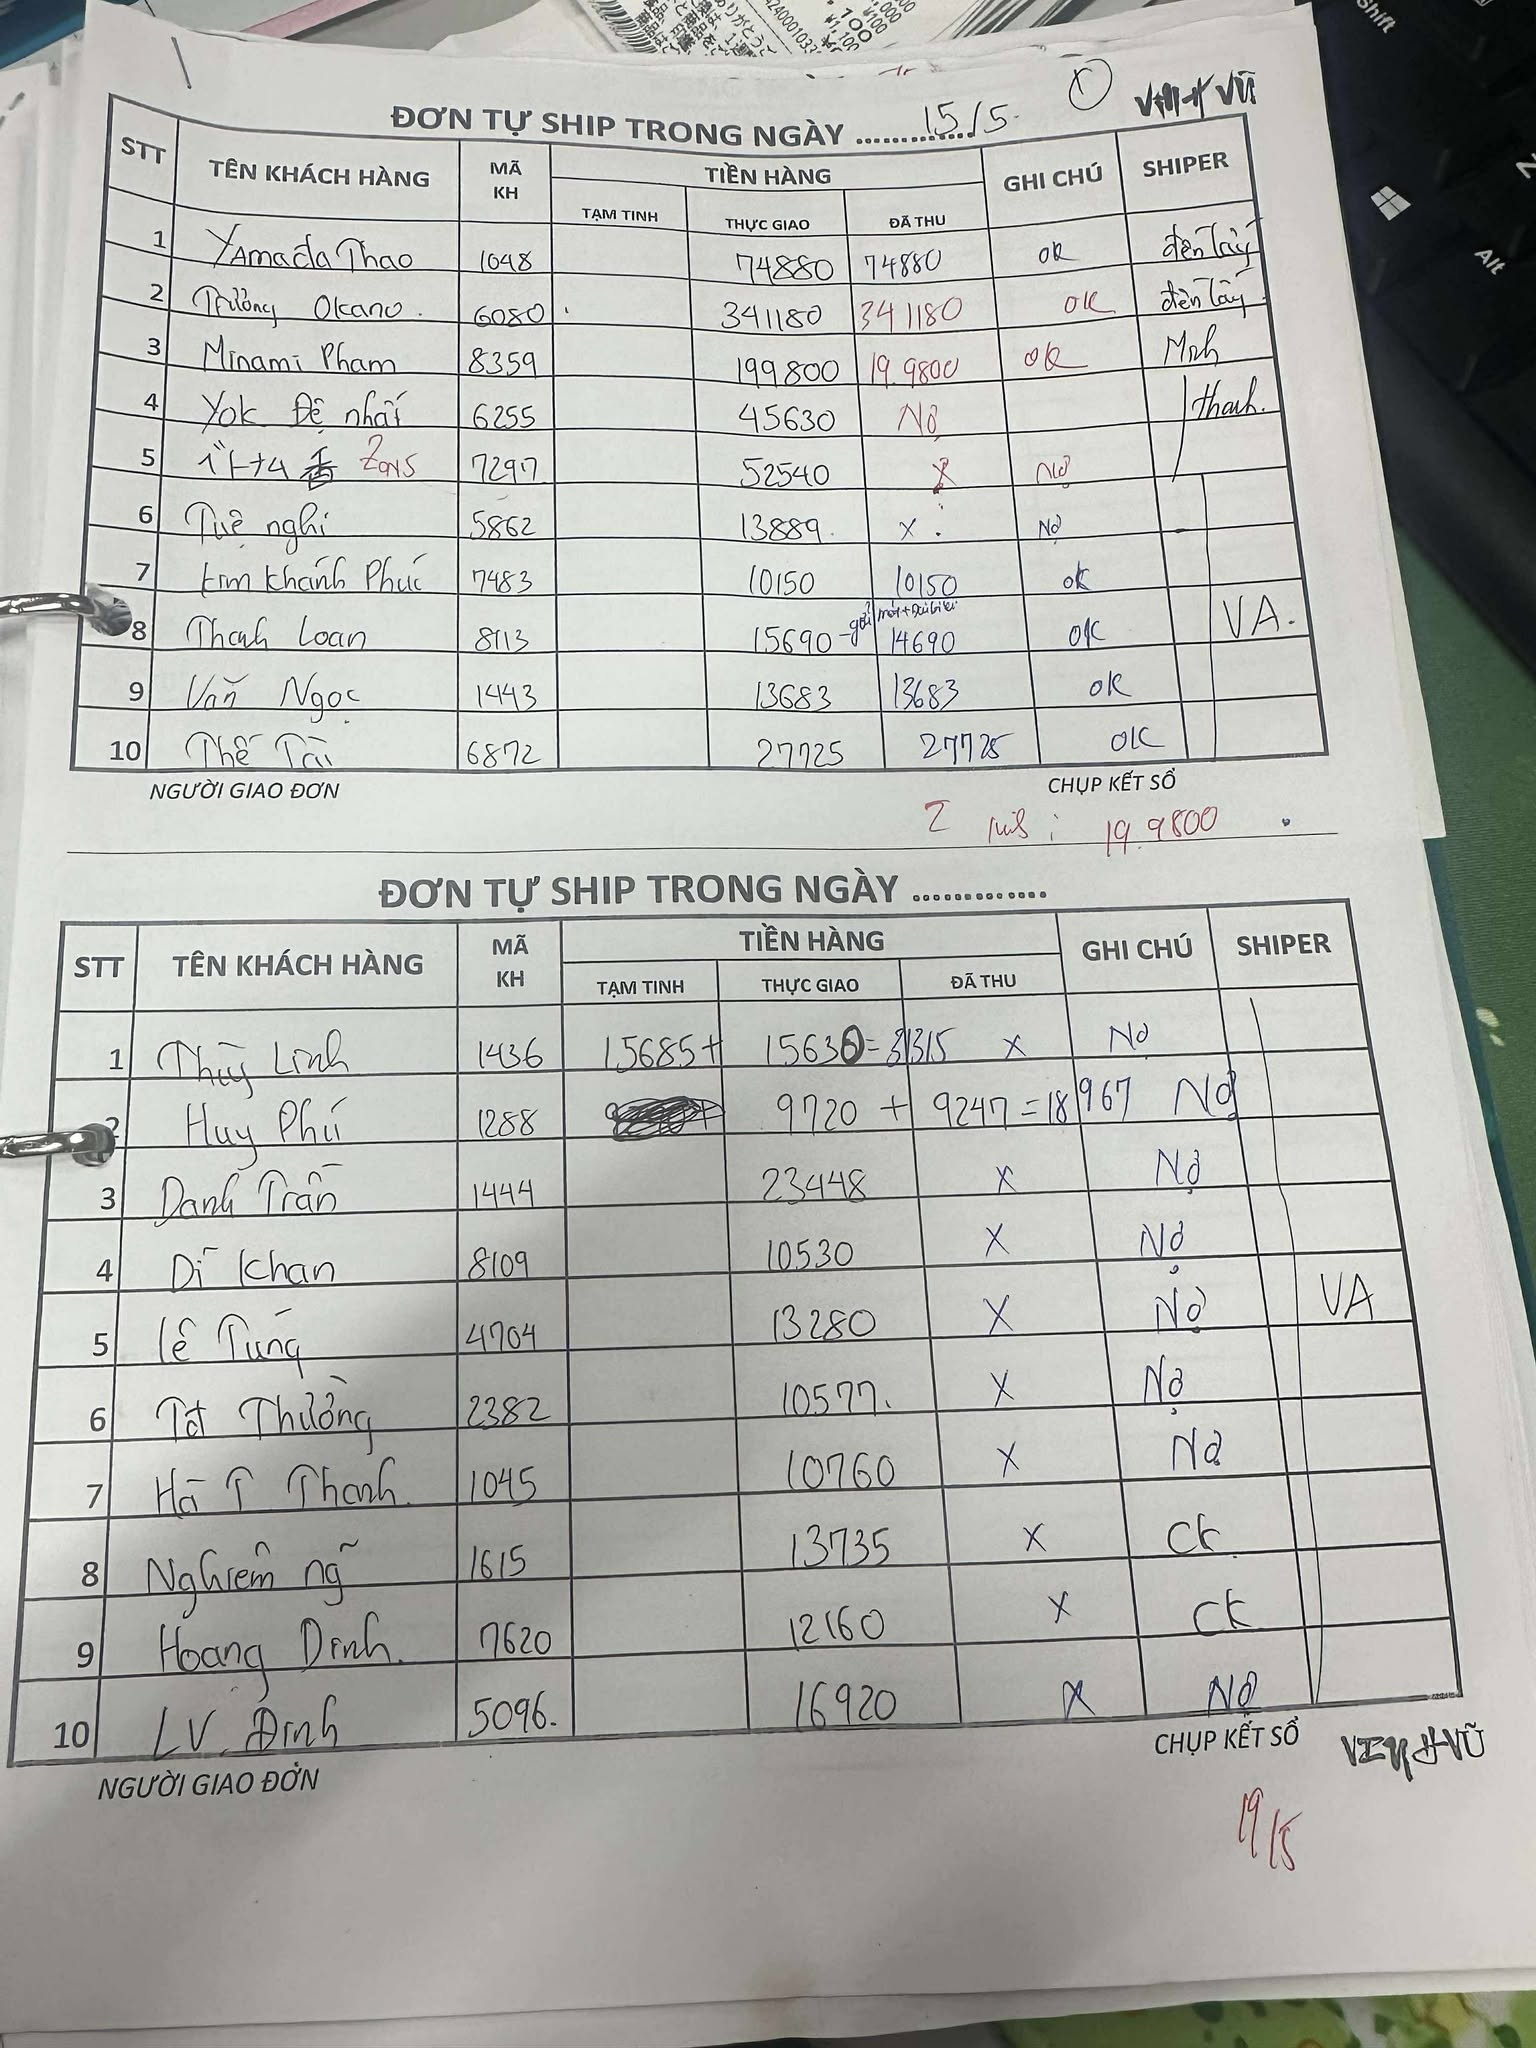 ĐƠN TỰ SHIP TRONG NGÀY .............. 15/5. 1 VŨ
STT TÊN KHÁCH HÀNG MÃ KH TIỀN HÀNG GHI CHÚ SHIPER
TẠM TINH THỰC GIAO ĐÃ THU
1 YAmada Thao 1048 74880 74880 OK đến lấy
2 Trường Okano. 6080 341180 341180 OK đến lấy
3 Minami Pham 8359 199800 19.9800 OK Mnh
4 Yok Đệ nhất 6255 45630 Nợ Thanh.
5 Zons 7297 52540 X Nợ
6 Tuệ nghi 5862 13889. X. Nợ
7 Kim Khánh Phúc 7483 10150 10150 OK
8 Thanh Loan 8113 15690 - gửi 14690 OK VA.
9 Văn Ngọc 1443 13683 13683 OK
10 Thế Tài 6872 27725 27725 OK
NGƯỜI GIAO ĐƠN CHỤP KẾT SỔ
19.9800
ĐƠN TỰ SHIP TRONG NGÀY .............
STT TÊN KHÁCH HÀNG MÃ KH TIỀN HÀNG GHI CHÚ SHIPER
TẠM TINH THỰC GIAO ĐÃ THU
1 Thùy Linh 1436 15685 + 15630 = 31315 X Nợ
2 Huy Phú 1288 9720 + 9247 = 18967 Nợ
3 Danh Trần 1444 23448 X Nợ
4 Dì Khan 8109 10530 X Nợ
5 Lê Tùng 4704 13280 X Nợ VA
6 Tót Thường 2382 10577. X Nợ
7 Hà T Thanh. 1045 10760 X Nợ
8 Nghiêm ngỡ 1615 13735 X CK
9 Hoang Dinh. 7620 12160 X CK
10 LV. Đinh 5096. 16920 X Nợ
NGƯỜI GIAO ĐỚN CHỤP KẾT SỔ VŨ
19/5
Shift
Alt